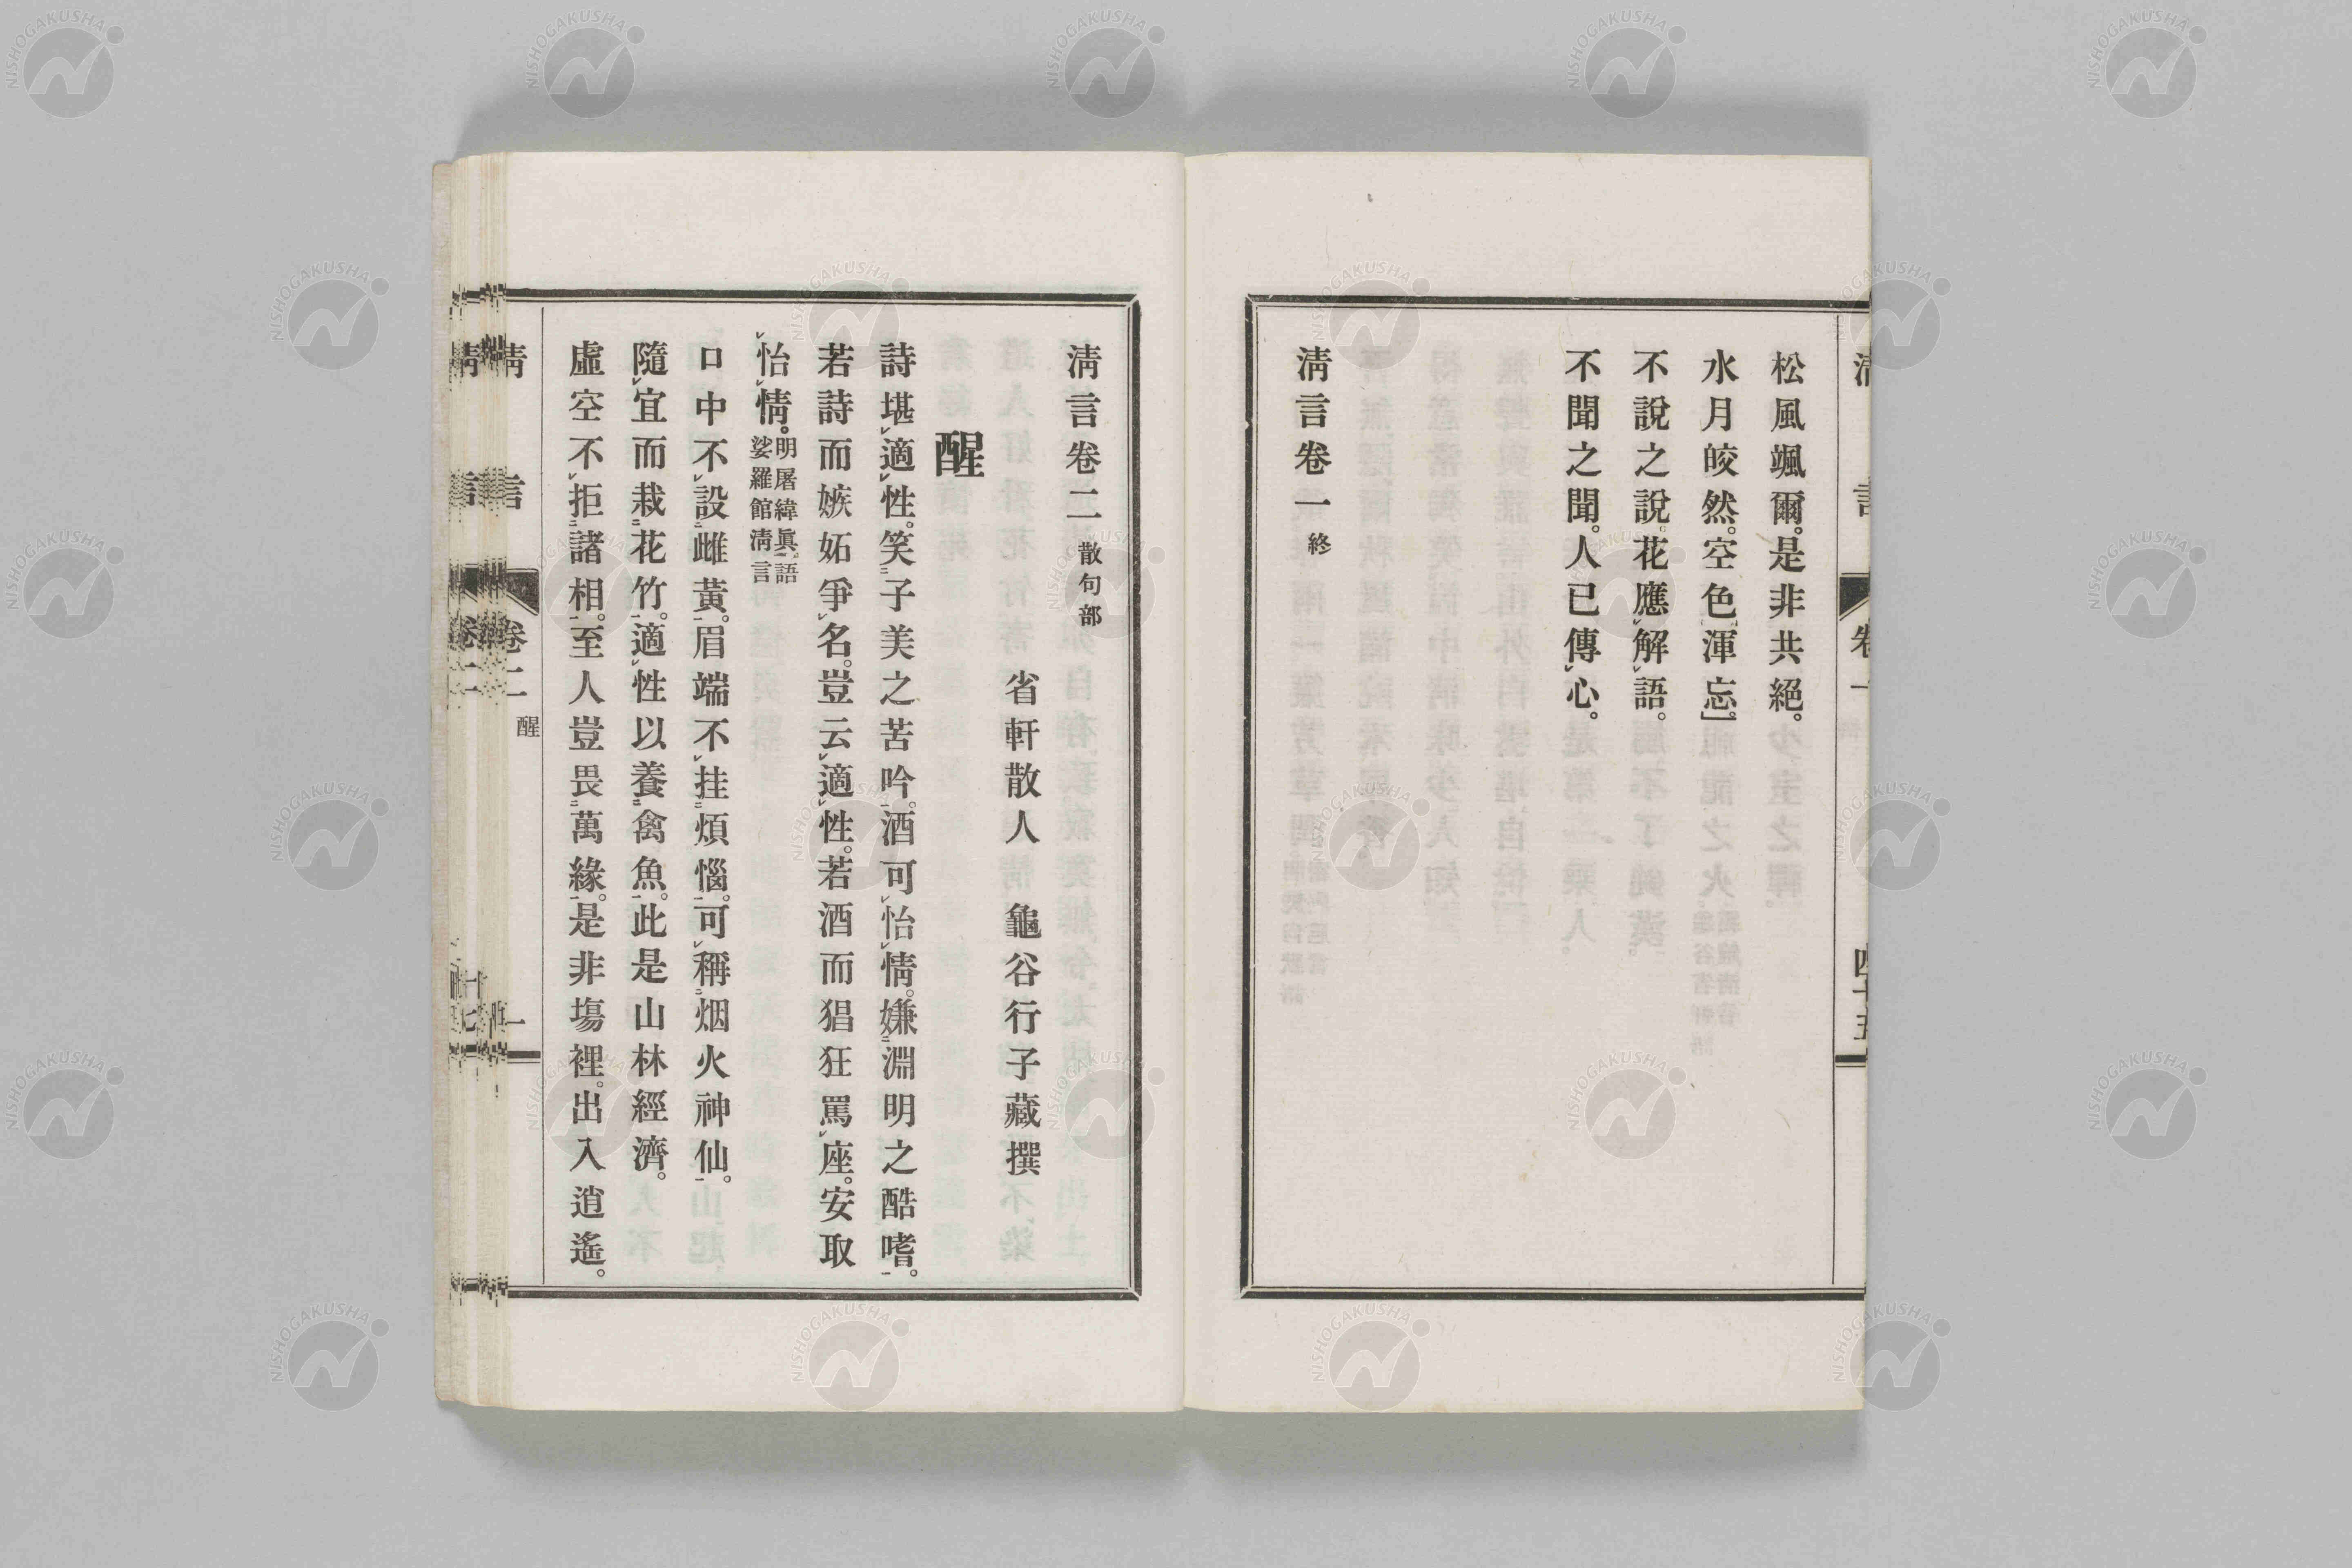 松風颯爾。是非共絕。
水月皎然。空色渾忘。
不說之說。花應解語。
不聞之聞。人已傳心。
淸言卷一 終
淸言卷二 散句部
省軒散人 龜谷行子藏撰
醒
詩堪適性。笑子美之苦吟。酒可怡情。嫌淵明之酷嗜。
若詩而嫉妬爭名。豈云適性。若酒而猖狂罵座。安取
怡情。明屠緯眞語
娑羅館淸言
口中不設雌黃。眉端不挂煩惱。可稱烟火神仙。
隨宜而栽花竹。適性以養禽魚。此是山林經濟。
虛空不拒諸相。至人豈畏萬緣。是非塲裡。出入逍遙。
淸言 卷二 醒 一
NISHOGAKUSHA